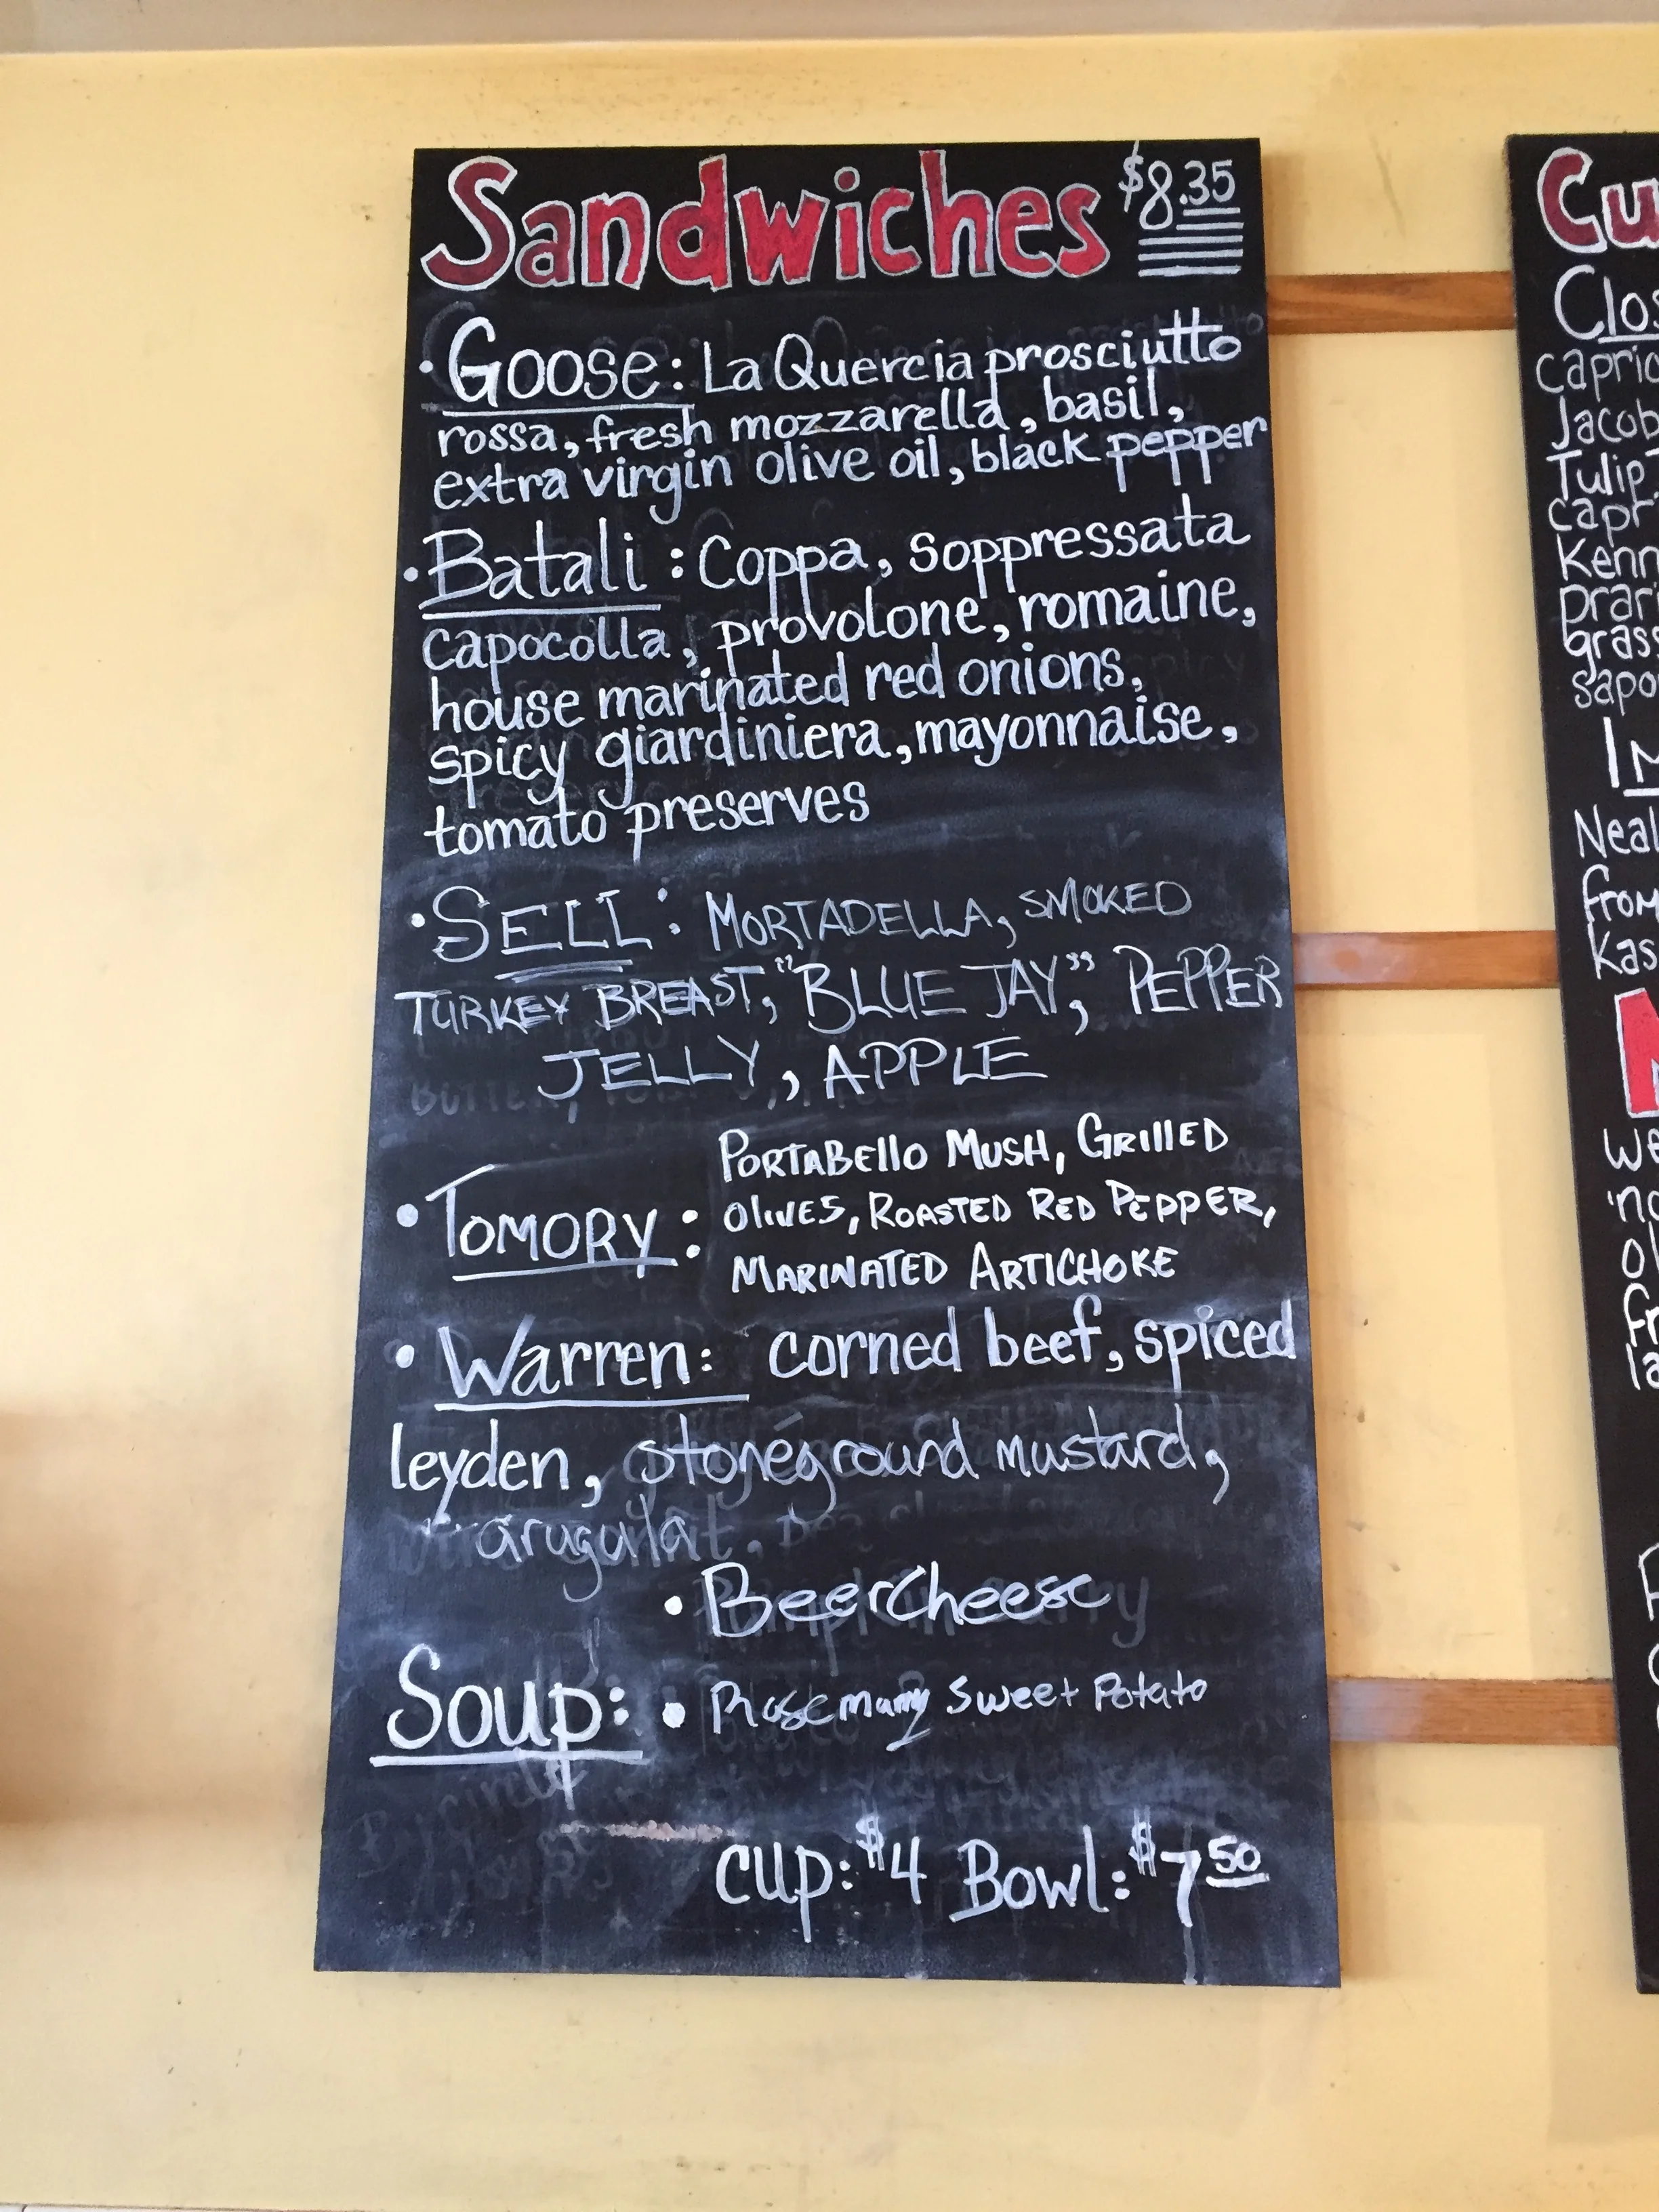 Sandwiches $8.35
• Goose: La Quercia prosciutto
rossa, fresh mozzarella, basil,
extra virgin olive oil, black pepper
• Batali: Coppa, soppressata
capocolla, provolone, romaine,
house marinated red onions,
spicy giardiniera, mayonnaise,
tomato preserves
• SELL: MORTADELLA, SMOKED
TURKEY BREAST, "BLUE JAY", PEPPER
JELLY, APPLE
• TOMORY: PORTABELLO MUSH, GRILLED
OLIVES, ROASTED RED PEPPER,
MARINATED ARTICHOKE
• Warren: corned beef, spiced
leyden, stoneground mustard,
arugula
• Beercheese
Soup: • Rosemary Sweet Potato
cup: $4 Bowl: $7 50
Cu
Clos
capric
Jacob
Tulip
capr
Kenn
prari
grass
sapo
Im
Neal
from
Kas
we
fr
la